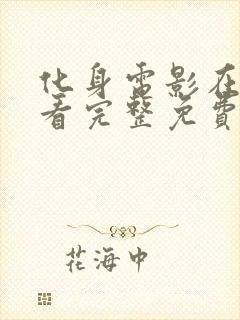 化身電影在
看完整免費
花海中